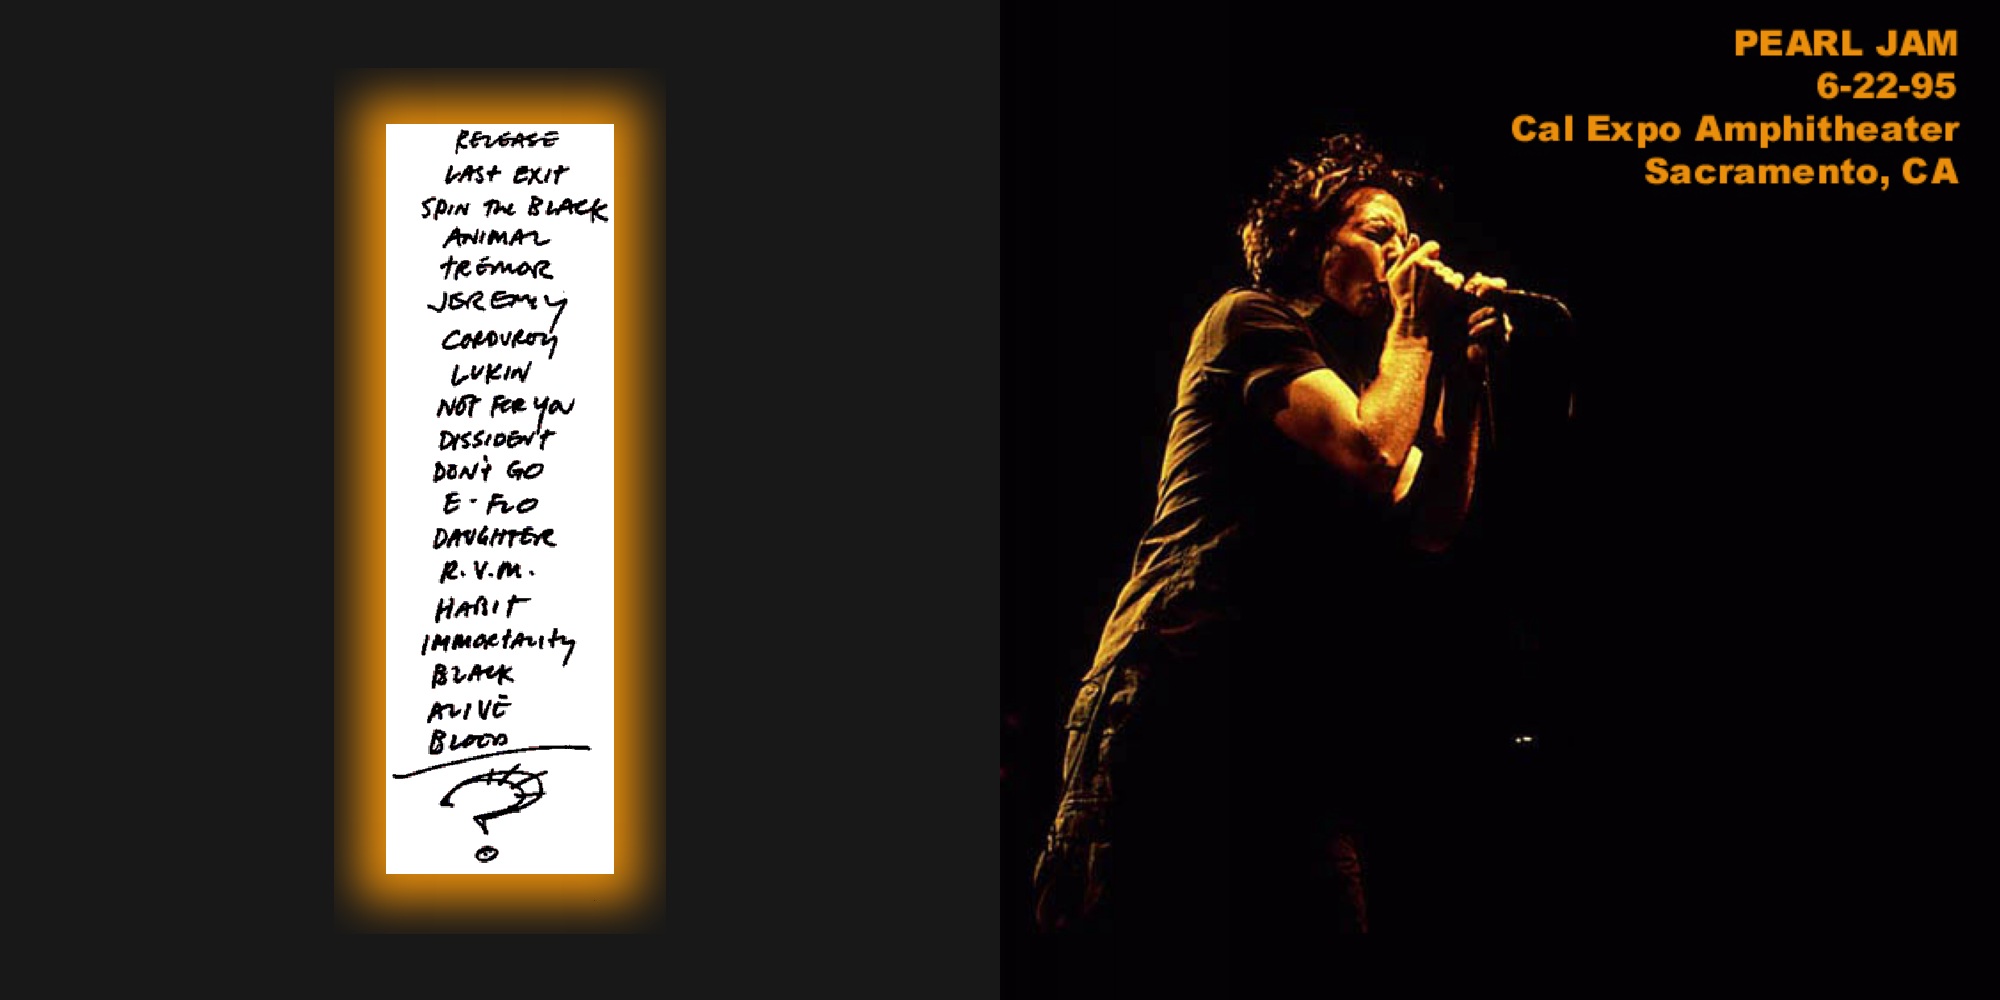 RELEASE
LAST EXIT
SPIN THE BLACK
ANIMAL
TREMOR
JEREMY
CORDUROY
LUKIN
NOT FOR YOU
DISSIDENT
DON'T GO
E-FLO
DAUGHTER
R.V.M.
HABIT
IMMORTALITY
BLACK
ALIVE
BLOOD
?
PEARL JAM
6-22-95
Cal Expo Amphitheater
Sacramento, CA